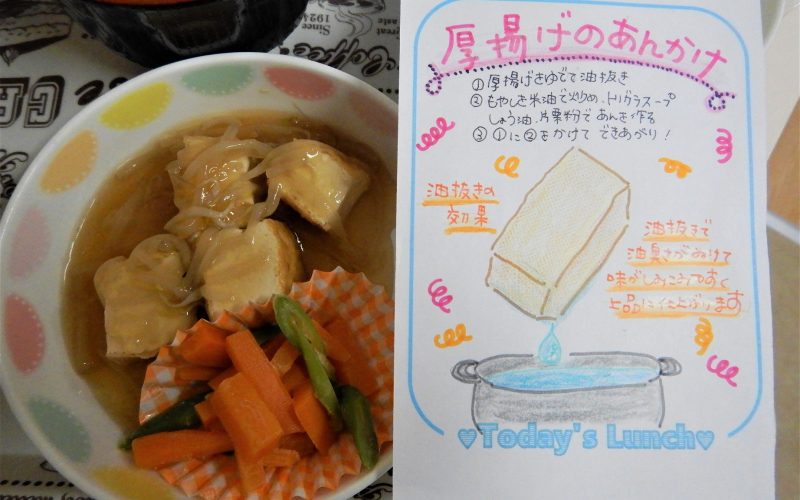 厚揚げのあんかけ
①厚揚げをゆでて油抜き
②もやしを米油で炒め、トリガラスープ
しょう油、片栗粉であんを作る
③①に②をかけてできあがり!
油抜きの
効果
油抜きで
油臭さがぬけて
味がしみこみやすく
上品に仕上がります
♥Today's Lunch♥
Since
1924
Coffee